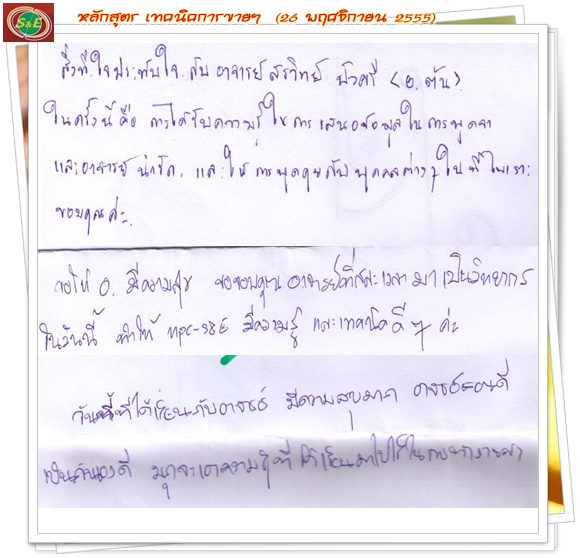 S&E
หลักสูตร เทคนิคการขายฯ (26 พฤศจิกายน 2555)
สิ่งที่ใจประทับใจ กับ อาจารย์ สรวิทย์ บัวศรี (อ. ต้น)
ในครั้งนี้ คือ การได้รับความรู้ ในการเสนอข้อมูลในการพูดจา
และอาจารย์ น่ารัก. และให้ การพูดคุยกับ บุคคลต่างๆ
ขอบคุณค่ะ.
ขอให้ อ. มีความสุข ขอขอบคุณ อาจารย์ที่สละเวลา มาเป็นวิทยากร
ในวันนี้ ทำให้ npc-s&E มีความรู้ และเทคนิคดีๆ ค่ะ
วันนี้ที่ได้เรียนกับอาจารย์ มีความสุขมาก อาจารย์สอนดี
เป็นกันเองดี